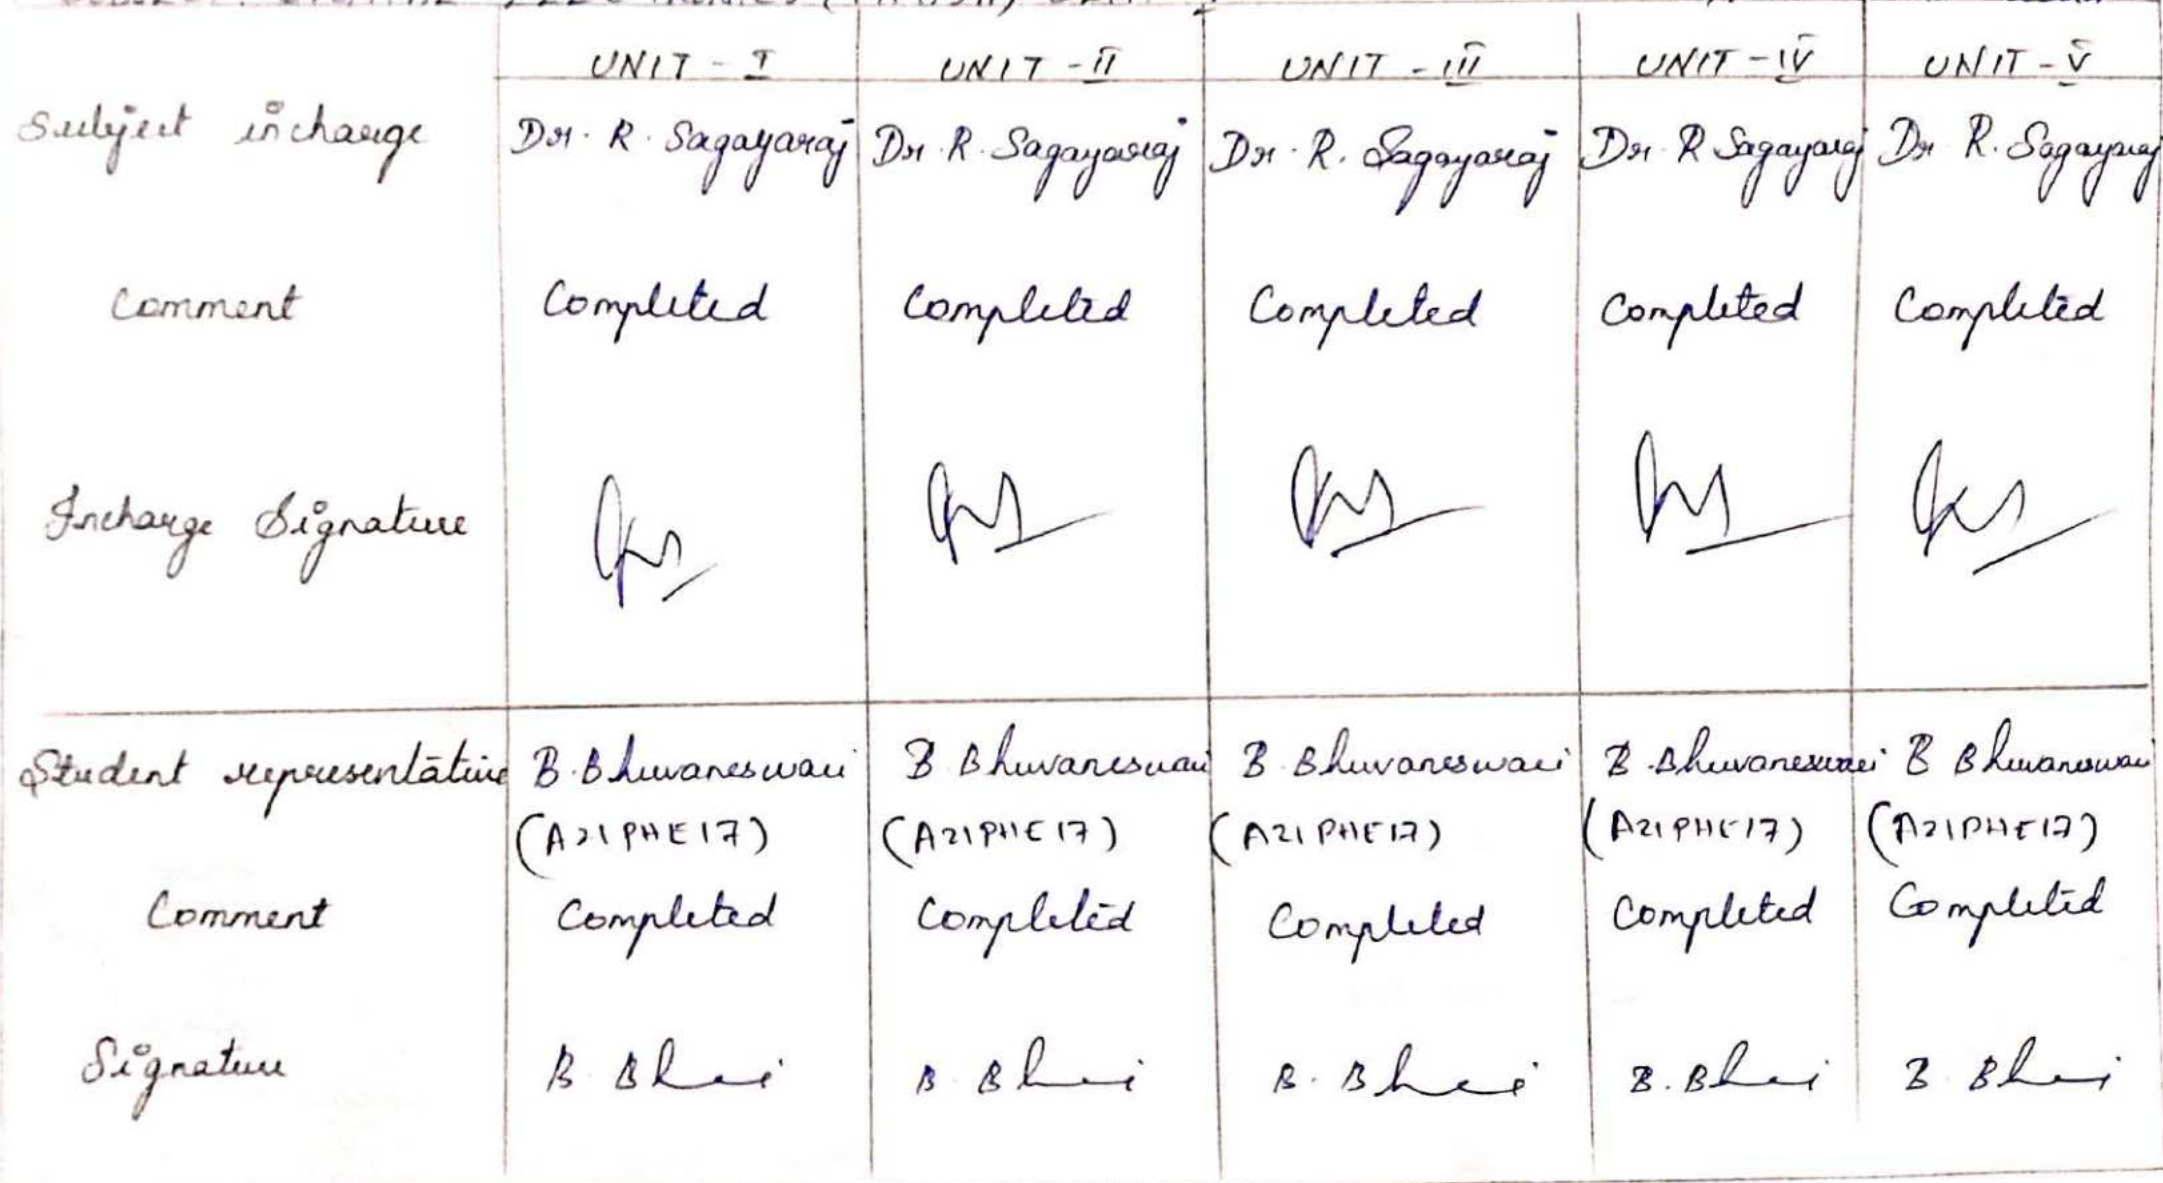 UNIT - I UNIT - II UNIT - III UNIT - IV UNIT - V
Subject incharge Dr. R. Sagayaraj Dr. R. Sagayaraj Dr. R. Sagayaraj Dr. R Sagayaraj Dr R. Sagayaraj
Comment Completed Completed Completed Completed Completed
Incharge Signature
Student representative B. Bhuvaneswari B Bhuvaneswari B Bhuvaneswari B. Bhuvaneswari B Bhuvaneswari
(A21PHE17) (A21PHE17) (A21PHE17) (A21PHE17) (A21PHE17)
Comment Completed Completed Completed Completed Completed
Signature